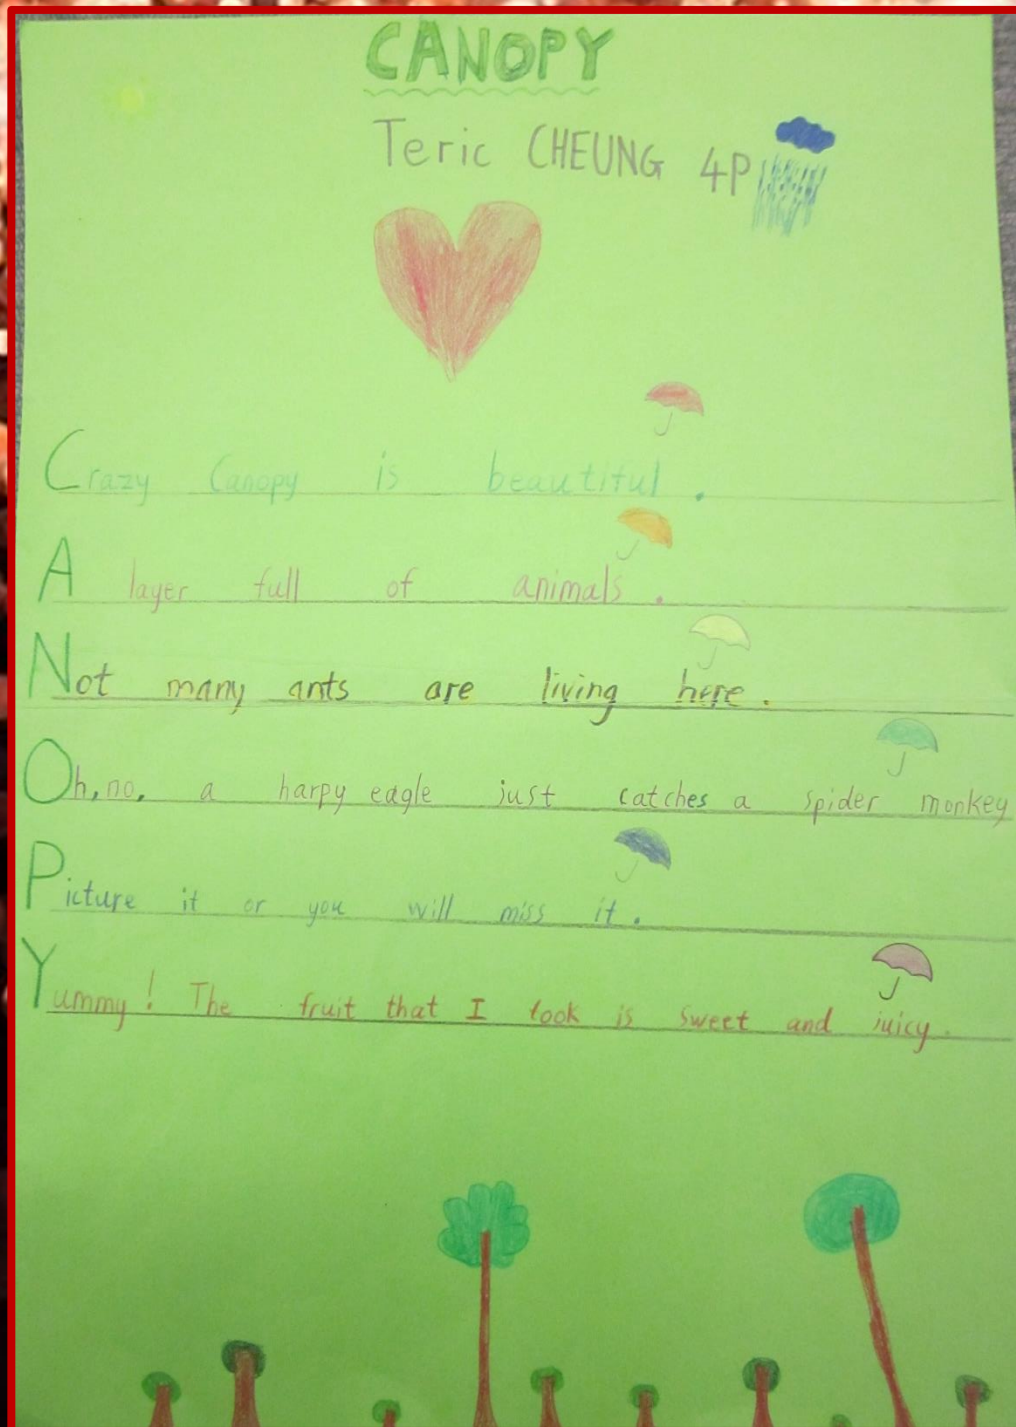 CANOPY
Teric CHEUNG 4P
Crazy Canopy is beautiful.
A layer full of animals.
Not many ants are living here.
Oh, no, a harpy eagle just catches a spider monkey
Picture it or you will miss it.
Yummy! The fruit that I took is sweet and juicy.